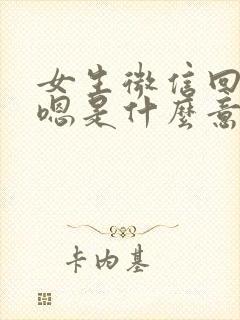 女生微信回
嗯是什麼意
卡内基